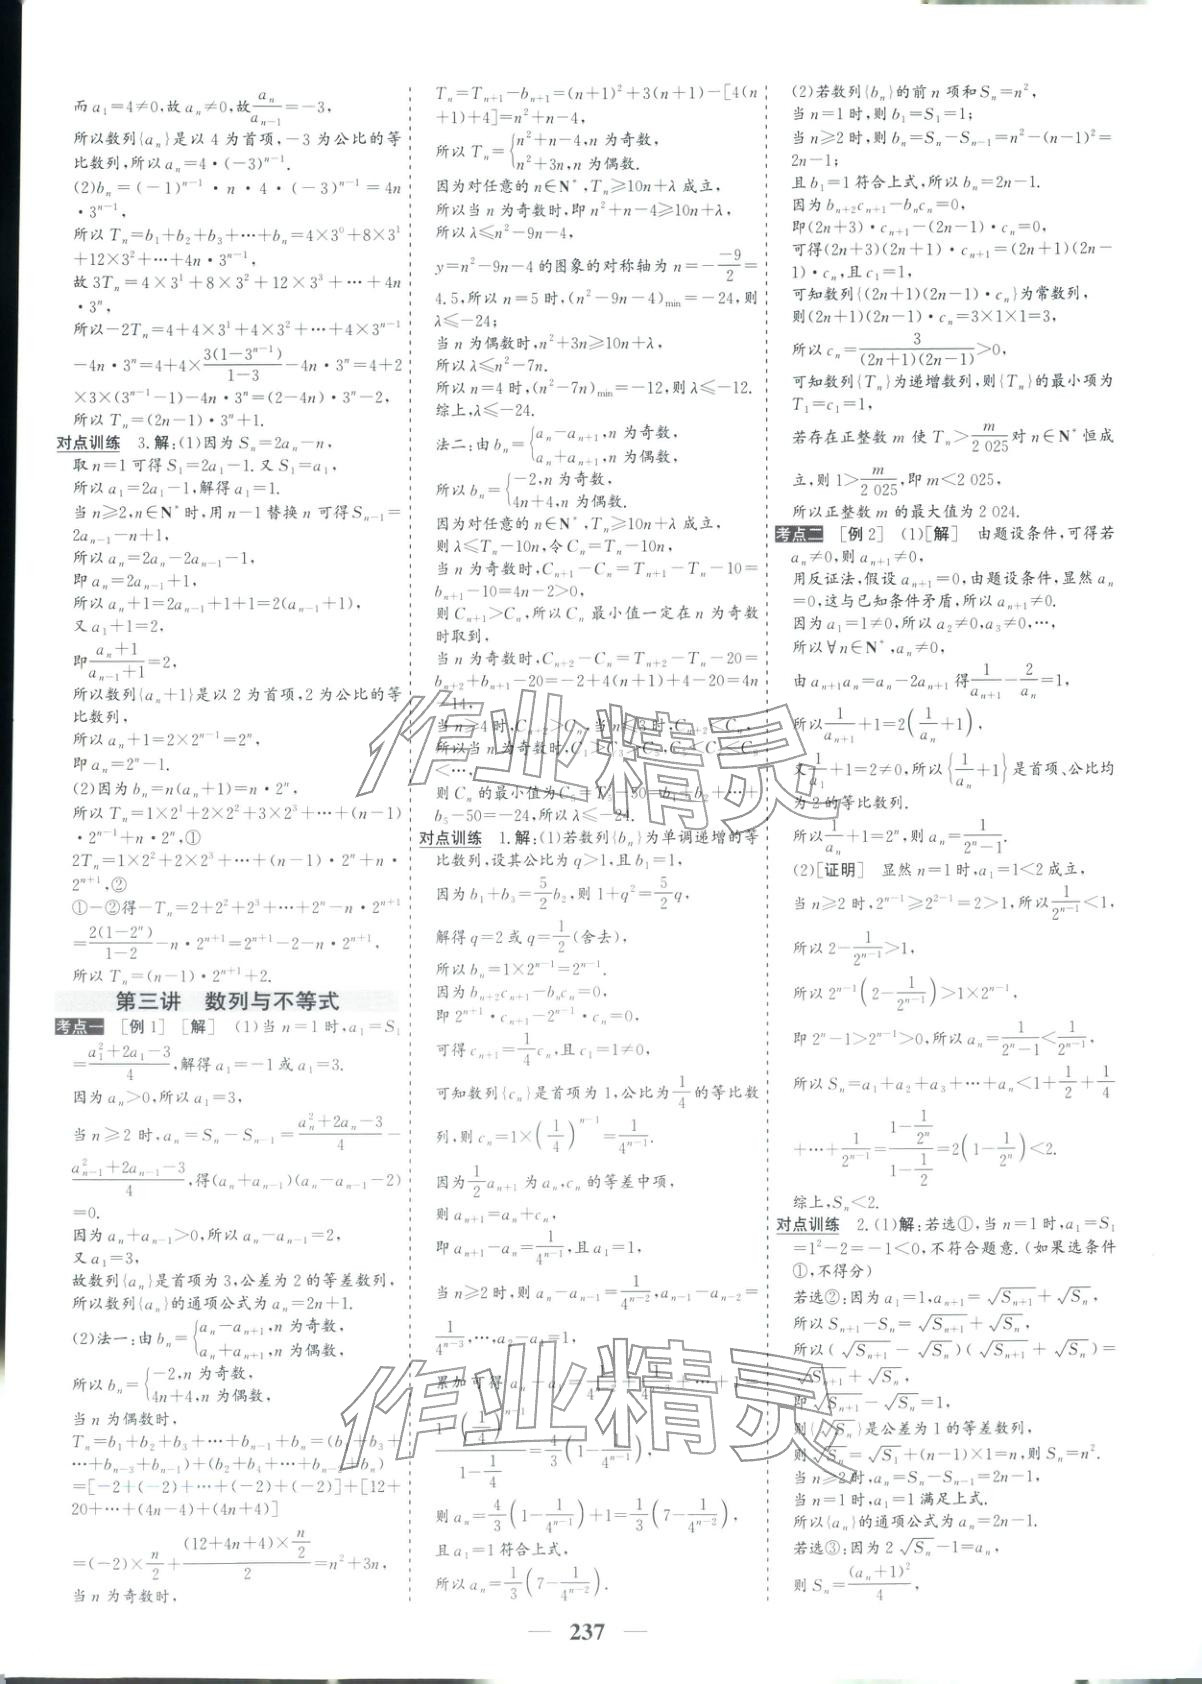 而a₁=4≠0,故aₙ≠0,故aₙ/aₙ₋₁=-3,
所以数列{aₙ}是以4为首项,-3为公比的等
比数列,所以aₙ=4·(-3)ⁿ⁻¹.
(2)bₙ=(-1)ⁿ⁻¹·n·4·(-3)ⁿ⁻¹=4n
·3ⁿ⁻¹,
所以Tₙ=b₁+b₂+b₃+…+bₙ=4×3⁰+8×3¹
+12×3²+…+4n·3ⁿ⁻¹,
故3Tₙ=4×3¹+8×3²+12×3³+…+4n
·3ⁿ,
所以-2Tₙ=4+4×3¹+4×3²+…+4×3ⁿ⁻¹
-4n·3ⁿ=4+4×3(1-3ⁿ⁻¹)/(1-3)-4n·3ⁿ=4+2
×3×(3ⁿ⁻¹-1)-4n·3ⁿ=(2-4n)·3ⁿ-2,
所以Tₙ=(2n-1)·3ⁿ+1.
对点训练 3.解:(1)因为Sₙ=2aₙ-n,
取n=1可得S₁=2a₁-1.又S₁=a₁,
所以a₁=2a₁-1,解得a₁=1.
当n≥2,n∈N*时,用n-1替换n可得Sₙ₋₁=
2aₙ₋₁-n+1,
所以aₙ=2aₙ-2aₙ₋₁-1,
即aₙ=2aₙ₋₁+1,
所以aₙ+1=2aₙ₋₁+1+1=2(aₙ₋₁+1),
又a₁+1=2,
即(aₙ+1)/(aₙ₋₁+1)=2,
所以数列{aₙ+1}是以2为首项,2为公比的等
比数列,
所以aₙ+1=2×2ⁿ⁻¹=2ⁿ,
即aₙ=2ⁿ-1.
(2)因为bₙ=n(aₙ+1)=n·2ⁿ,
所以Tₙ=1×2¹+2×2²+3×2³+…+(n-1)
·2ⁿ⁻¹+n·2ⁿ,①
2Tₙ=1×2²+2×2³+…+(n-1)·2ⁿ+n·
2ⁿ⁺¹,②
①-②得-Tₙ=2+2²+2³+…+2ⁿ-n·2ⁿ⁺¹
=2(1-2ⁿ)/(1-2)-n·2ⁿ⁺¹=2ⁿ⁺¹-2-n·2ⁿ⁺¹,
所以Tₙ=(n-1)·2ⁿ⁺¹+2.
第三讲 数列与不等式
考点一 [例1] [解] (1)当n=1时,a₁=S₁
=(a₁²+2a₁-3)/4,解得a₁=-1或a₁=3.
因为aₙ>0,所以a₁=3,
当n≥2时,aₙ=Sₙ-Sₙ₋₁=(aₙ²+2aₙ-3)/4-
(aₙ₋₁²+2aₙ₋₁-3)/4,得(aₙ+aₙ₋₁)(aₙ-aₙ₋₁-2)
=0.
因为aₙ+aₙ₋₁>0,所以aₙ-aₙ₋₁=2,
又a₁=3,
故数列{aₙ}是首项为3,公差为2的等差数列,
所以数列{aₙ}的通项公式为aₙ=2n+1.
(2)法一:由bₙ={aₙ-aₙ₊₁,n为奇数,
aₙ+aₙ₊₁,n为偶数,
所以bₙ={-2,n为奇数,
4n+4,n为偶数,
当n为偶数时,
Tₙ=b₁+b₂+b₃+…+bₙ₋₁+bₙ=(b₁+b₃+
…+bₙ₋₃+bₙ₋₁)+(b₂+b₄+…+bₙ₋₂+bₙ)
=[-2+(-2)+…+(-2)+(-2)]+[12+
20+…+(4n-4)+(4n+4)]
=(-2)×n/2+((12+4n+4)×n/2)/2=n²+3n,
当n为奇数时,
Tₙ=Tₙ₊₁-bₙ₊₁=(n+1)²+3(n+1)-[4(n
+1)+4]=n²+n-4,
所以Tₙ={n²+n-4,n为奇数,
n²+3n,n为偶数.
因为对任意的n∈N*,Tₙ≥10n+λ成立,
所以当n为奇数时,即n²+n-4≥10n+λ,
所以λ≤n²-9n-4,
y=n²-9n-4的图象的对称轴为n=-(-9)/2=
4.5,所以n=5时,(n²-9n-4)min=-24,则
λ≤-24;
当n为偶数时,n²+3n≥10n+λ,
所以λ≤n²-7n.
所以n=4时,(n²-7n)min=-12,则λ≤-12.
综上,λ≤-24.
法二:由bₙ={aₙ-aₙ₊₁,n为奇数,
aₙ+aₙ₊₁,n为偶数,
所以bₙ={-2,n为奇数,
4n+4,n为偶数.
因为对任意的n∈N*,Tₙ≥10n+λ成立,
则λ≤Tₙ-10n,令Cₙ=Tₙ-10n,
当n为奇数时,Cₙ₊₁-Cₙ=Tₙ₊₁-Tₙ-10=
bₙ₊₁-10=4n-2>0,
则Cₙ₊₁>Cₙ,所以Cₙ最小值一定在n为奇数
时取到,
当n为奇数时,Cₙ₊₂-Cₙ=Tₙ₊₂-Tₙ-20=
bₙ₊₂+bₙ₊₁-20=-2+4(n+1)+4-20=4n
-14,
当n≥4时,Cₙ₊₂>Cₙ,当n≤3时,Cₙ₊₂<Cₙ,
所以当n为奇数时,C₁>C₃>C₅,C₅<C₇<C₉
<…,
则Cₙ的最小值为C₅=T₅-50=b₁+b₂+…+
b₅-50=-24,所以λ≤-24.
对点训练 1.解:(1)若数列{bₙ}为单调递增的等
比数列,设其公比为q>1,且b₁=1,
因为b₁+b₃=5/2b₂,则1+q²=5/2q,
解得q=2或q=1/2(舍去),
所以bₙ=1×2ⁿ⁻¹=2ⁿ⁻¹.
因为bₙ₊₂cₙ₊₁-bₙcₙ=0,
即2ⁿ⁺¹·cₙ₊₁-2ⁿ⁻¹·cₙ=0,
可得cₙ₊₁=1/4cₙ,且c₁=1≠0,
可知数列{cₙ}是首项为1,公比为1/4的等比数
列,则cₙ=1×(1/4)ⁿ⁻¹=1/4ⁿ⁻¹.
因为1/2aₙ₊₁为aₙ,cₙ的等差中项,
则aₙ₊₁=aₙ+cₙ,
即aₙ₊₁-aₙ=1/4ⁿ⁻¹,
当n≥2时,则aₙ-aₙ₋₁=1/4ⁿ⁻²,aₙ₋₁-aₙ₋₂=
1/4ⁿ⁻³,…,a₂-a₁=1,
累加可得aₙ-a₁=
=4/3(1-1/4ⁿ⁻¹),
则aₙ=4/3(1-1/4ⁿ⁻¹)+1=1/3(7-1/4ⁿ⁻²),
且a₁=1符合上式,
所以aₙ=1/3(7-1/4ⁿ⁻²).
(2)若数列{bₙ}的前n项和Sₙ=n²,
当n=1时,则b₁=S₁=1;
当n≥2时,则bₙ=Sₙ-Sₙ₋₁=n²-(n-1)²=
2n-1;
且b₁=1符合上式,所以bₙ=2n-1.
因为bₙ₊₂cₙ₊₁-bₙcₙ=0,
即(2n+3)·cₙ₊₁-(2n-1)·cₙ=0,
可得(2n+3)(2n+1)·cₙ₊₁=(2n+1)(2n-
1)·cₙ,且c₁=1,
可知数列{(2n+1)(2n-1)·cₙ}为常数列,
则(2n+1)(2n-1)·cₙ=3×1×1=3,
所以cₙ=3/((2n+1)(2n-1))>0,
可知数列{Tₙ}为递增数列,则{Tₙ}的最小项为
T₁=c₁=1,
若存在正整数m使Tₙ>m/2 025对n∈N*恒成
立,则1>m/2 025,即m<2 025,
所以正整数m的最大值为2 024.
考点二 [例2] (1)[解] 由题设条件,可得若
aₙ≠0,则aₙ₊₁≠0,
用反证法,假设aₙ₊₁=0,由题设条件,显然aₙ
=0,这与已知条件矛盾,所以aₙ₊₁≠0.
因为a₁=1≠0,所以a₂≠0,a₃≠0,…,
所以∀n∈N*,aₙ≠0,
由aₙ₊₁aₙ=aₙ-2aₙ₊₁得1/aₙ₊₁-2/aₙ=1,
所以1/aₙ₊₁+1=2(1/aₙ+1),
又1/a₁+1=2≠0,所以{1/aₙ+1}是首项、公比均
为2的等比数列.
所以1/aₙ+1=2ⁿ,则aₙ=1/(2ⁿ-1).
(2)[证明] 显然n=1时,a₁=1<2成立,
当n≥2时,2ⁿ⁻¹≥2²⁻¹=2>1,所以1/2ⁿ⁻¹<1,
所以2-1/2ⁿ⁻¹>1,
所以2ⁿ⁻¹(2-1/2ⁿ⁻¹)>2ⁿ⁻¹,
即2ⁿ-1>2ⁿ⁻¹>0,所以aₙ=1/(2ⁿ-1)<1/2ⁿ⁻¹,
所以Sₙ=a₁+a₂+a₃+…+aₙ<1+1/2+1/4
+…+1/2ⁿ⁻¹=(1-1/2ⁿ)/(1-1/2)=2(1-1/2ⁿ)<2.
综上,Sₙ<2.
对点训练 2.(1)解:若选①,当n=1时,a₁=S₁
=1²-2=-1<0,不符合题意.(如果选条件
①,不得分)
若选②:因为a₁=1,aₙ₊₁=√Sₙ₊₁+√Sₙ,
所以Sₙ₊₁-Sₙ=√Sₙ₊₁+√Sₙ,
所以(√Sₙ₊₁-√Sₙ)(√Sₙ₊₁+√Sₙ)=
√Sₙ₊₁+√Sₙ,
即√Sₙ₊₁-√Sₙ=1,
则{√Sₙ}是公差为1的等差数列,
则√Sₙ=√S₁+(n-1)×1=n,则Sₙ=n².
当n≥2时,aₙ=Sₙ-Sₙ₋₁=2n-1,
当n=1时,a₁=1满足上式.
所以{aₙ}的通项公式为aₙ=2n-1.
若选③:因为2√Sₙ-1=aₙ,
则Sₙ=(aₙ+1)²/4,
237
作业精灵
作业精灵